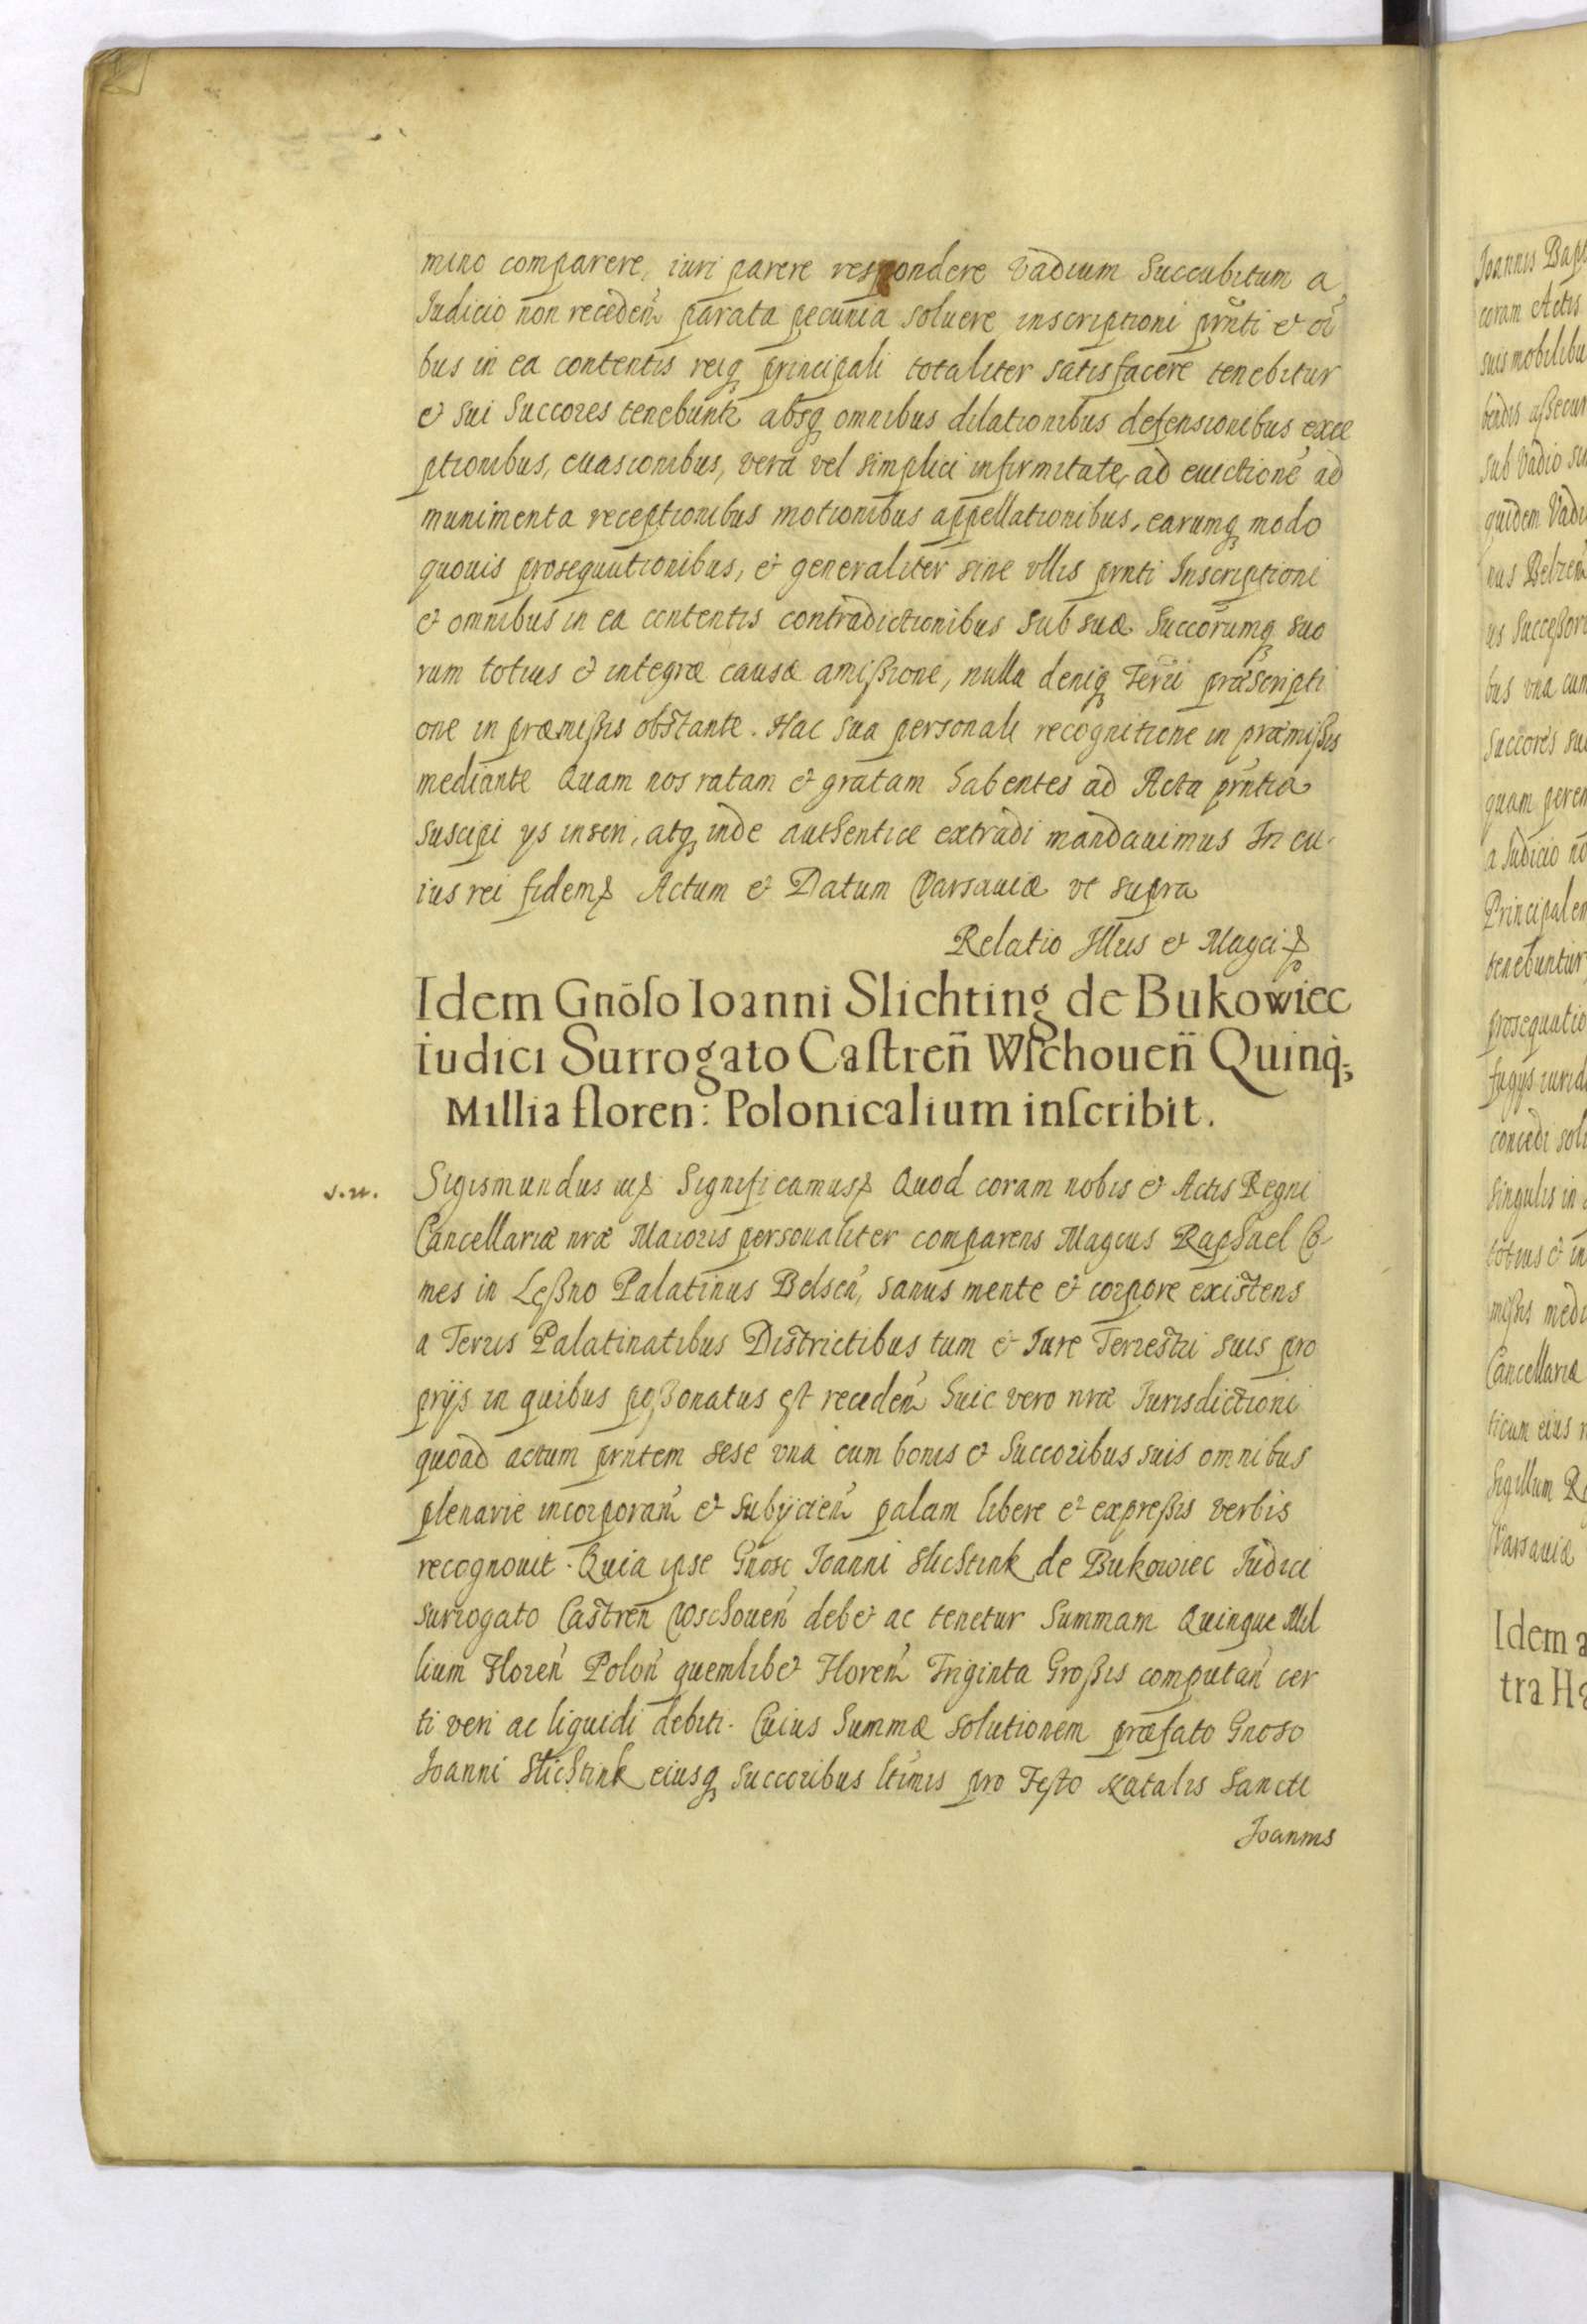 mino comparere, iuri parere respondere vadium succubitum a
Iudicio non receden̄ parata pecunia soluere inscriptioni prn̄ti et oī
bus in ea contentis reiq principali totaliter satisfacere tenebitur
et sui Succores tenebuntr absq omnibus dilationibus defensionibus exce
ptionibus, euasionibus, vera vel simplici infirmitate, ad euictionē ad
munimenta receptionibus motionibus appellationibus, earumq modo
quouis prosequutionibus, et generaliter sine vllis prnti Inscriptioni
et omnibus in ea contentis contradictionibus sub suæ Succorumq suo
rum totius et integræ causæ amißione, nulla deniq Terrii præscripti
one in præmißis obstante. Hac sua personali recognitione in præmißis
mediante Quam nos ratam et gratam habentes ad Acta prntia
suscipi ijs inseri, atq inde authentice extradi mandauimus In cu-
ius rei fidem Actum et Datum Varsauiæ vt supra
Relatio Illus et Magci
Idem Gnōso Ioanni Slichting de Bukowiec
iudici Surrogato Castren̄ Wschouen̄ Quinq;
Millia floren: Polonicalium inscribit.
Sigismundus Significamus Quod coram nobis et Actis Regni
Cancellariæ nræ Maioris personaliter comparens Magcus Raphael Co-
mes in Leßno Palatinus Belsen̄, sanus mente et corpore existens
a Terris Palatinatibus Districtibus tum et Iure Terrestri suis pro
prijs in quibus poßonatus est receden̄ huic vero nræ Iurisdictioni
quoad actum prntem sese vna cum bonis et Succoribus suis omnibus
plenarie incorporan̄ et subijcien̄ palam libere et expreßis verbis
recognouit. Quia ipse Gnoso Ioanni Slichtink de Bukowiec Iudici
surrogato Castren̄ Wschouen̄ debet ac tenetur Summam Quinque Mil
lium Floren̄ Polon̄ quemlibet Floren̄ Triginta Großis computan̄ cer
ti veri ac liquidi debiti. Cuius Summæ solutionem præfato Gnoso
Ioanni Slichtink eiusq Succoribus ltimis pro Festo Natalis Sancti
Joannis
Joannis Bapt
coram Actis
suis mobilibu
bendis aßecur
sub vadio su
quidem Vadi
nus Belzen̄
us Succeßor
bus vna cum
Succores su
quam peren
a Iudicio nō
Principalem
tenebuntur
prosequutio
fugijs iurid
concedi sol
singulis in
totius et in
mißis medi
Cancellariæ
ticum eius
Sigillum R
Varsauiæ
Idem a
tra Ha